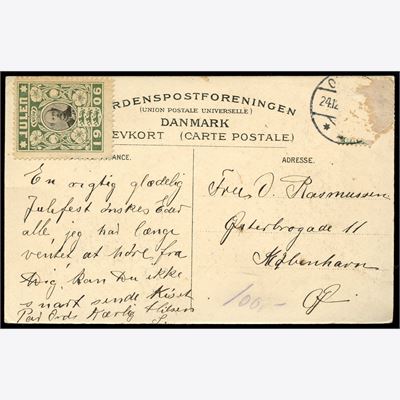 JULEN
1906
RDENSPOSTFORENINGEN
(UNION POSTALE UNIVERSELLE)
DANMARK
EVKORT (CARTE POSTALE)
24.12
ANCE.
ADRESSE.
En rigtig glædelig
Julefest ønskes Eder
alle jeg har længe
ventet at høre fra
Dig, kan Du ikke
snart sende
Par Ord. Kærlig Hilsen
S.
Fru O. Rasmussen
Østerbrogade 11
København
Ø
100,-